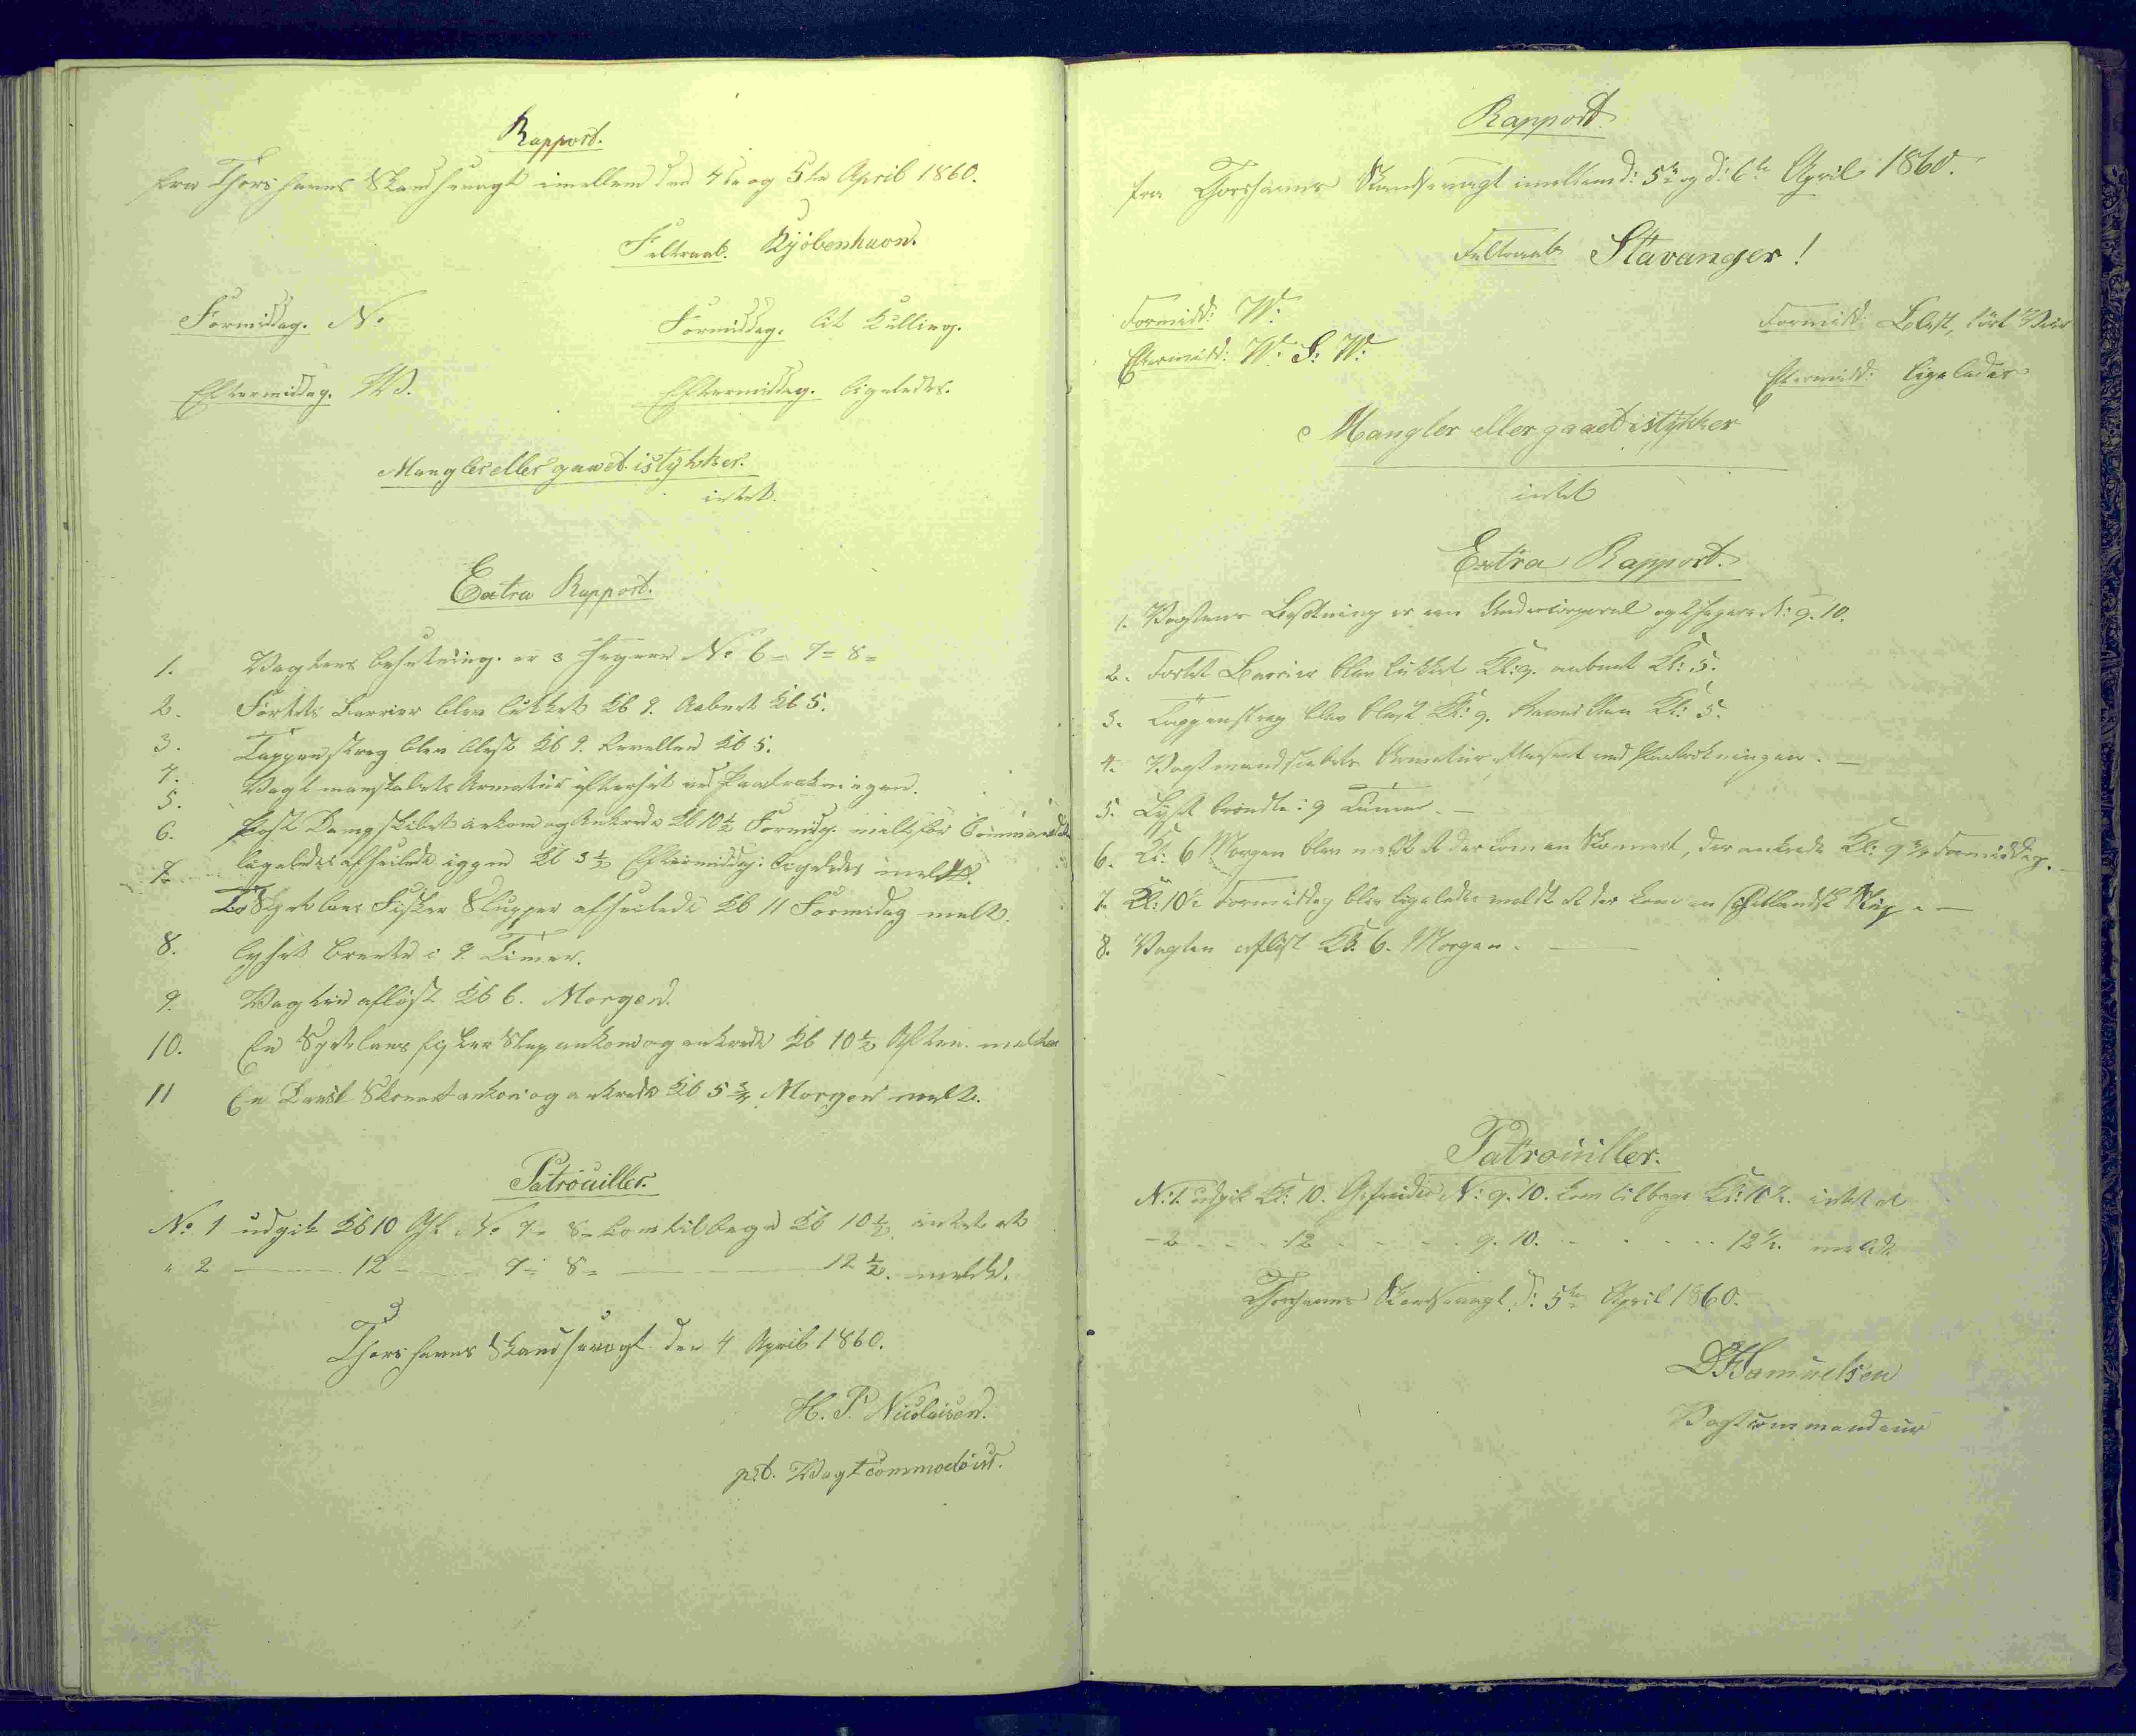 Rapport.
fra Thorshavns Skandsevagt imellem den 4de og 5te April 1860.
Feltraab. Kjöbenhavn.
Formiddag. N. Formiddag. lit Kulling.
Eftermiddag. W. Eftermiddag. ligeledes.
Mangler eller gaaet istykker.
intet.
Extra Rapport.
1. Vagtens besetning er 3 Jegere No 6 = 7 = 8 =
2. Fortets Barrier blev lukket Kl 9. Aabnet Kl 5.
3. Tappenstreg blev blest Kl 9. Revellen Kl 5.
4. Vagtmanskabets Armatur efterset ved Paatrækningen.
5. Post Dampskibet ankom og Ankrede Kl 10½ Formidg. melt for Commandanten
6. ligeledes afseilede iggen Kl 3½ Eftermiddag: ligeledes meldt.
7. To Fisker Slupper afseilede Kl 11 Formidag melt.
8. lyset brente i 9. Timer.
9. Vagten aflöst Kl 6. Morgen.
10. En fisker Slup ankom og ankrede Kl 10½ Aften. meltes
11 En Dansk Skonnert ankom og ankrede Kl 5¾ Morgen melt.
Patrouiller.
No 1 udgik Kl 10 Aft. No 7 = 8 = kom tilbage Kl 10½. intet at
" 2 12 7 = 8 = 12½. meldt.
Thorshavns Skandsevagt den 4 April 1860.
H. P. Nicolaisen.
p.t. Vagtcommodöur.
Rapport.
fra Thorshavns Skandsevagt imellem d: 5te og d: 6te April 1860.
Feltraab Stavanger!
Formidd: W: Formidd: Blæst, tört Veir
Eftermidd: W: S: W: Eftermidd: ligeledes
Mangler eller gaaet istykker
intet
Extra Rapport.
1. Vagtens Besætning er een Undercorporal og 2 Jægere N: 9. 10.
2. Fortets Barrier blev lukket Kl: 9. aabnet Kl: 5.
3. Tappenstreg blev blæst Kl: 9. Reveillen Kl: 5.
4. Vagtmandskabets Armatur efterseet ved Paatrækningen. —
5. Lyset brændte i 9 Timer. —
6. Kl: 6 Morgen blev meldt at der kom en Skonnert, der ankrede Kl: 9½ Formiddag. —
7. Kl: 10½ Formiddag blev ligeledes meldt at der kom en Schetlandsk Slup. —
8. Vagten aflöst Kl. 6. Morgen. —
Patrouiller.
N: 1. udgik Kl: 10. Gefreider N: 9. 10. kom tilbage Kl: 10½. intet at
- 2 - - - 12 - - - - 9. 10. - - - - - 12½. meldt
Thorshavns Skandsevagt, d: 5te April 1860.
D. Samuelsen
Vagtcommandeur